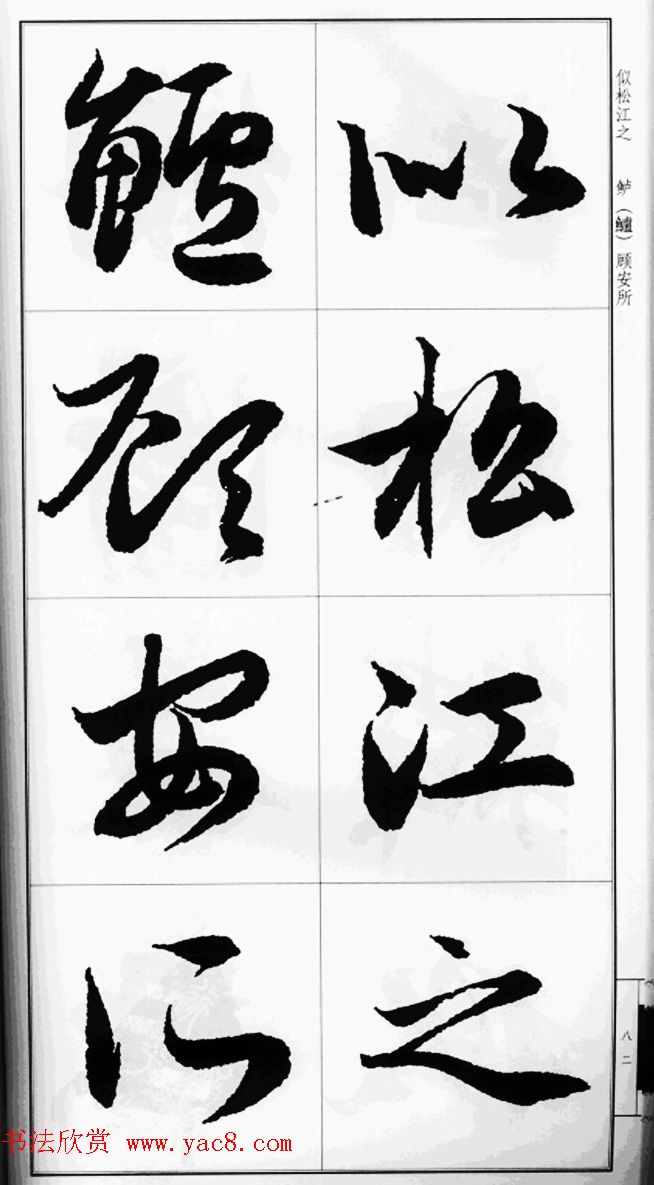 似松江之
鲈顧安所
似松江之 鲈（鱸）顾安所
八二
书法欣赏 www.yac8.com